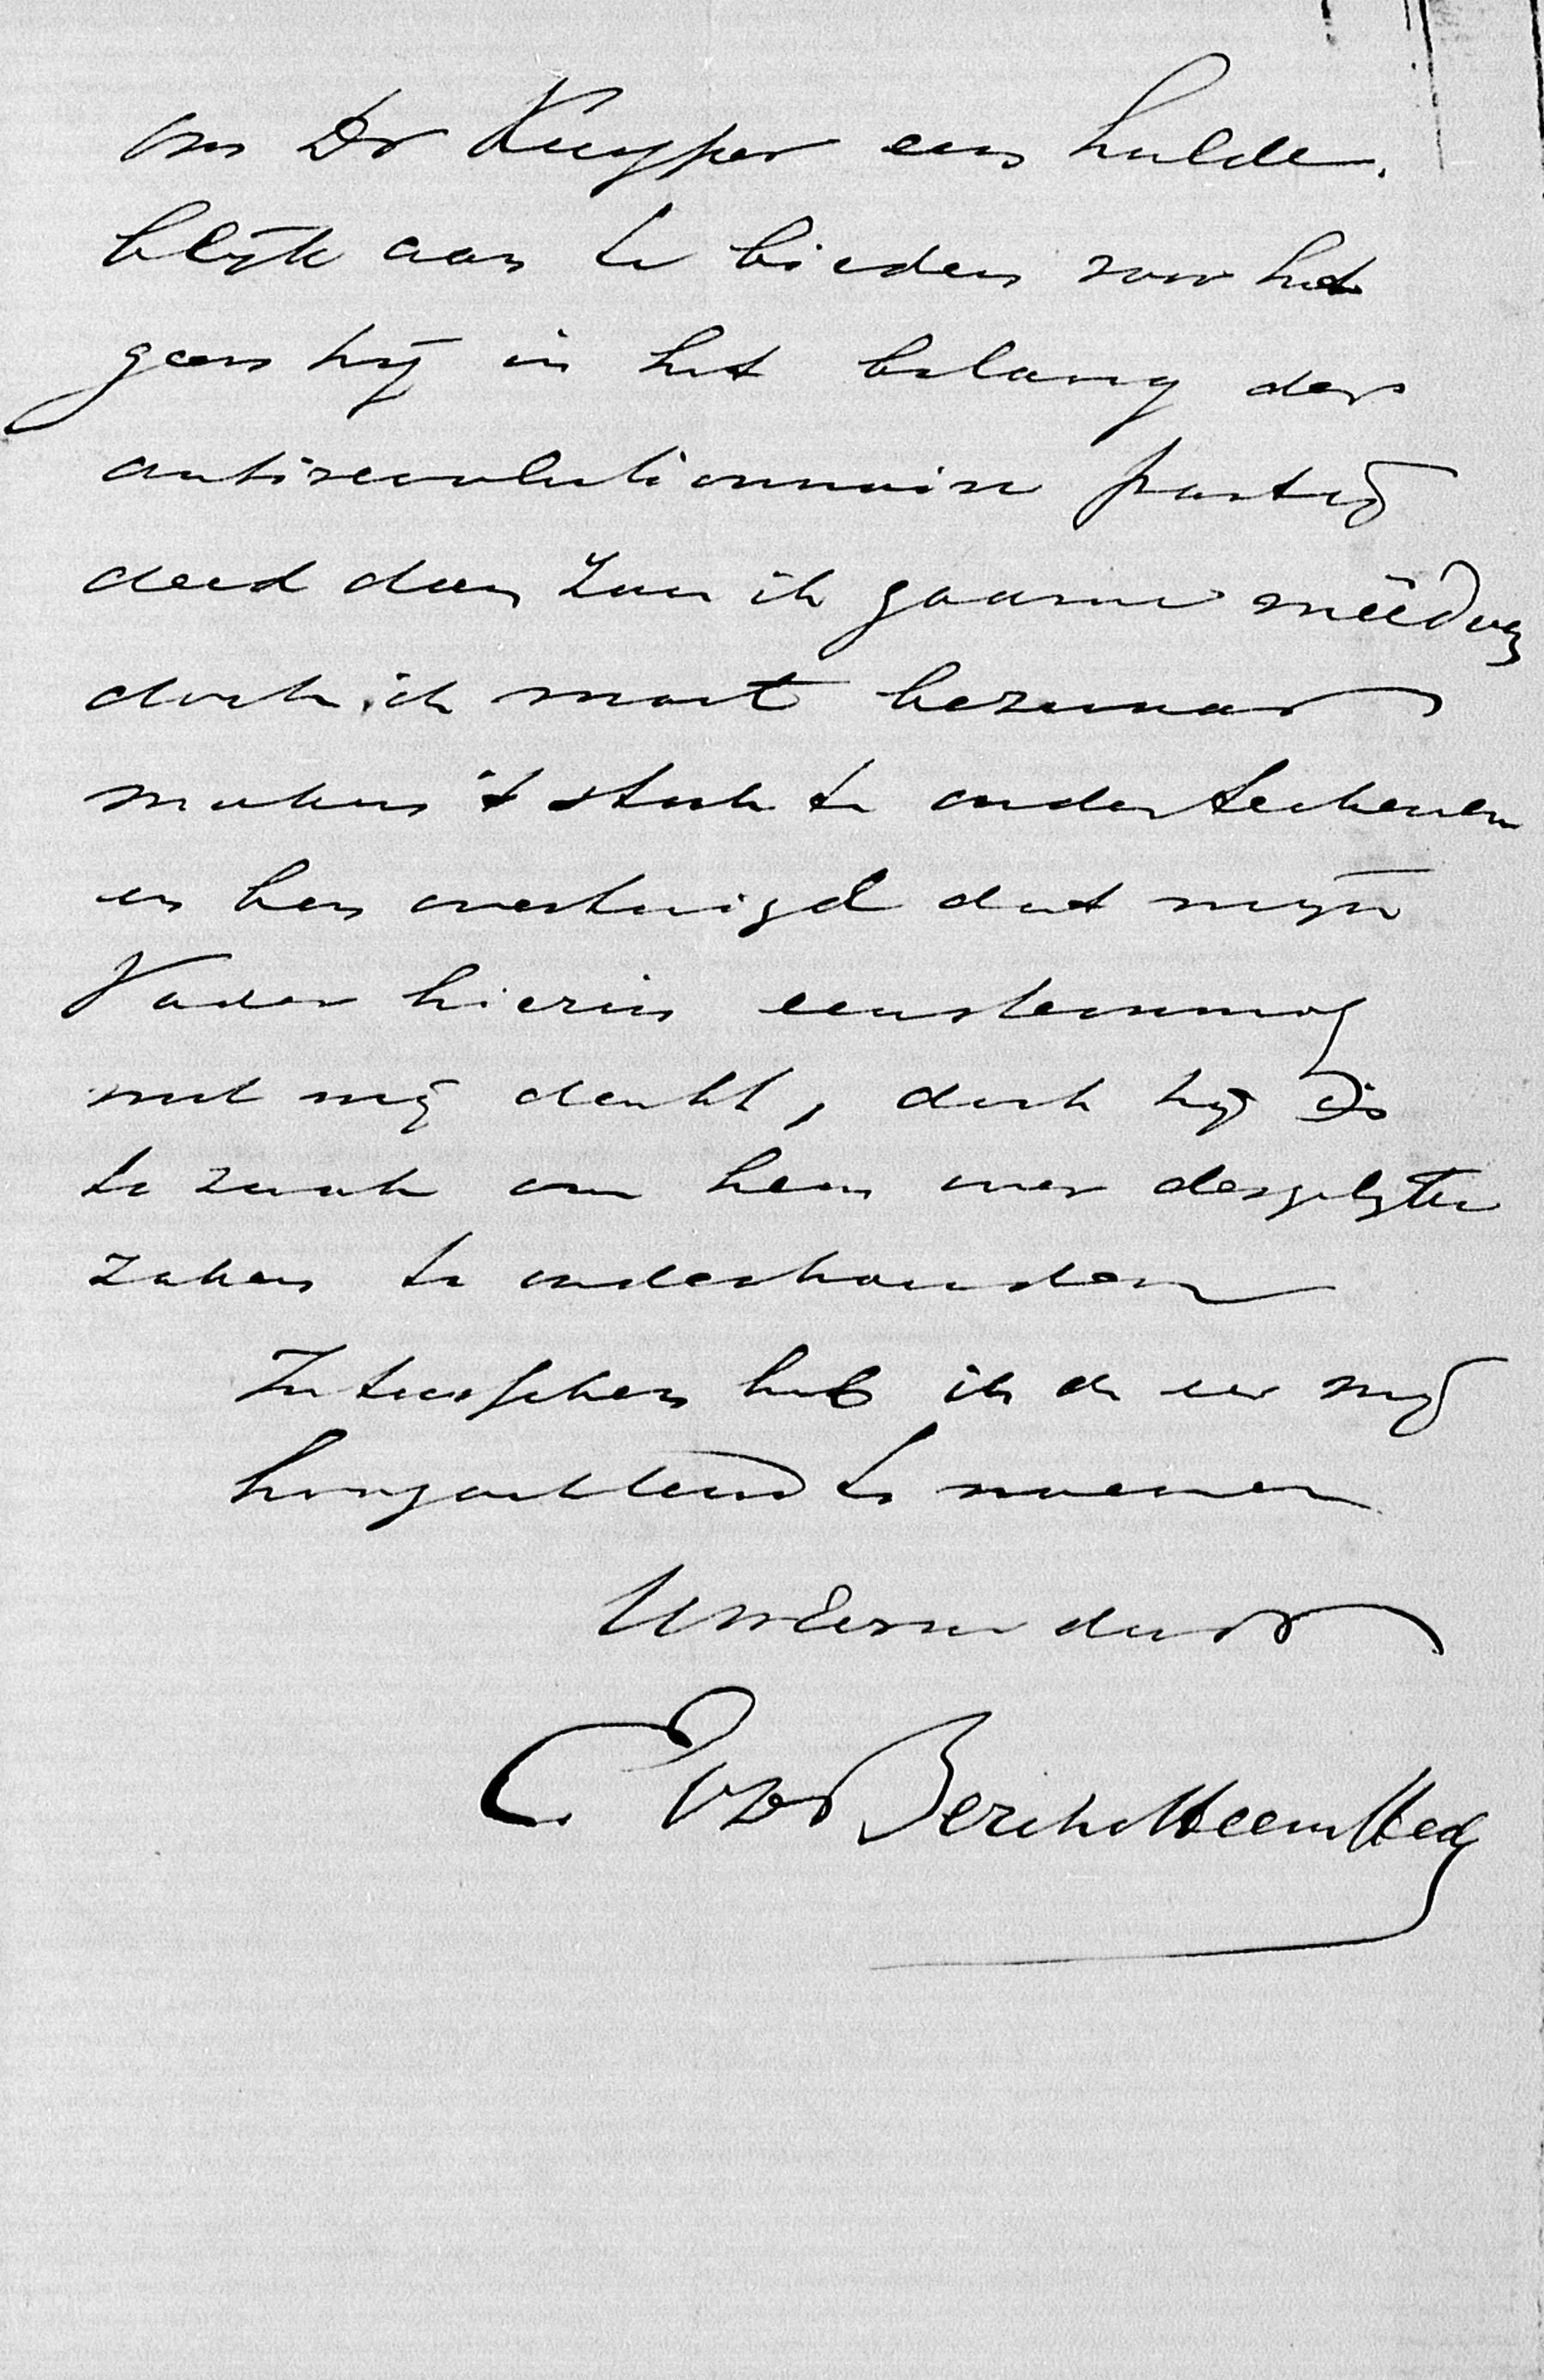 om Dr Kuyper een hulde.
blijk aan te bieden voor het
geen hij in het belang der
antirevolutionnaire partij
deed dan zou ik gaarne méédoen
doch ik moet bezwaar
maken 't stuk te onderteekenen
en ben overtuigd dat mijn
Vader hierin eenstemmig
met mij denkt, doch hij is
te zwak om hem over dergelijke
zaken te onderhouden
Intusschen heb ik de eer mij
hoogachtend te noemen
UwEdw dw dr
C v d Berch v Heemstede